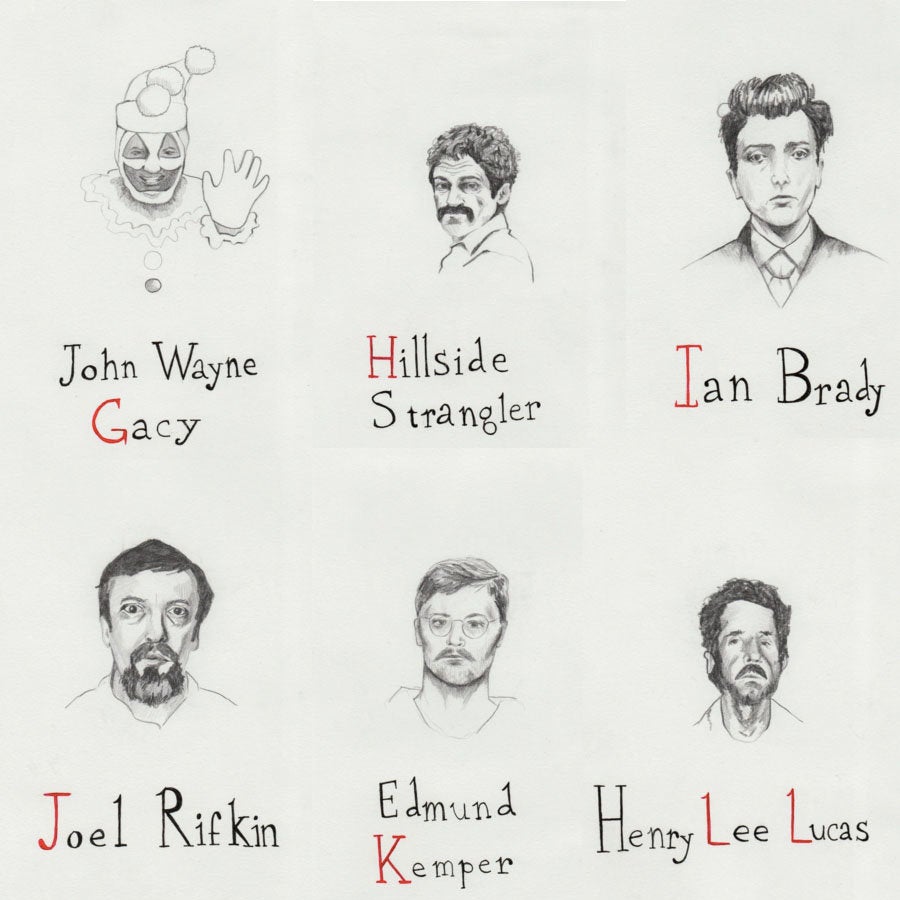 John Wayne
Gacy
Hillside
Strangler
Ian Brady
Joel Rifkin
Edmund
Kemper
Henry Lee Lucas